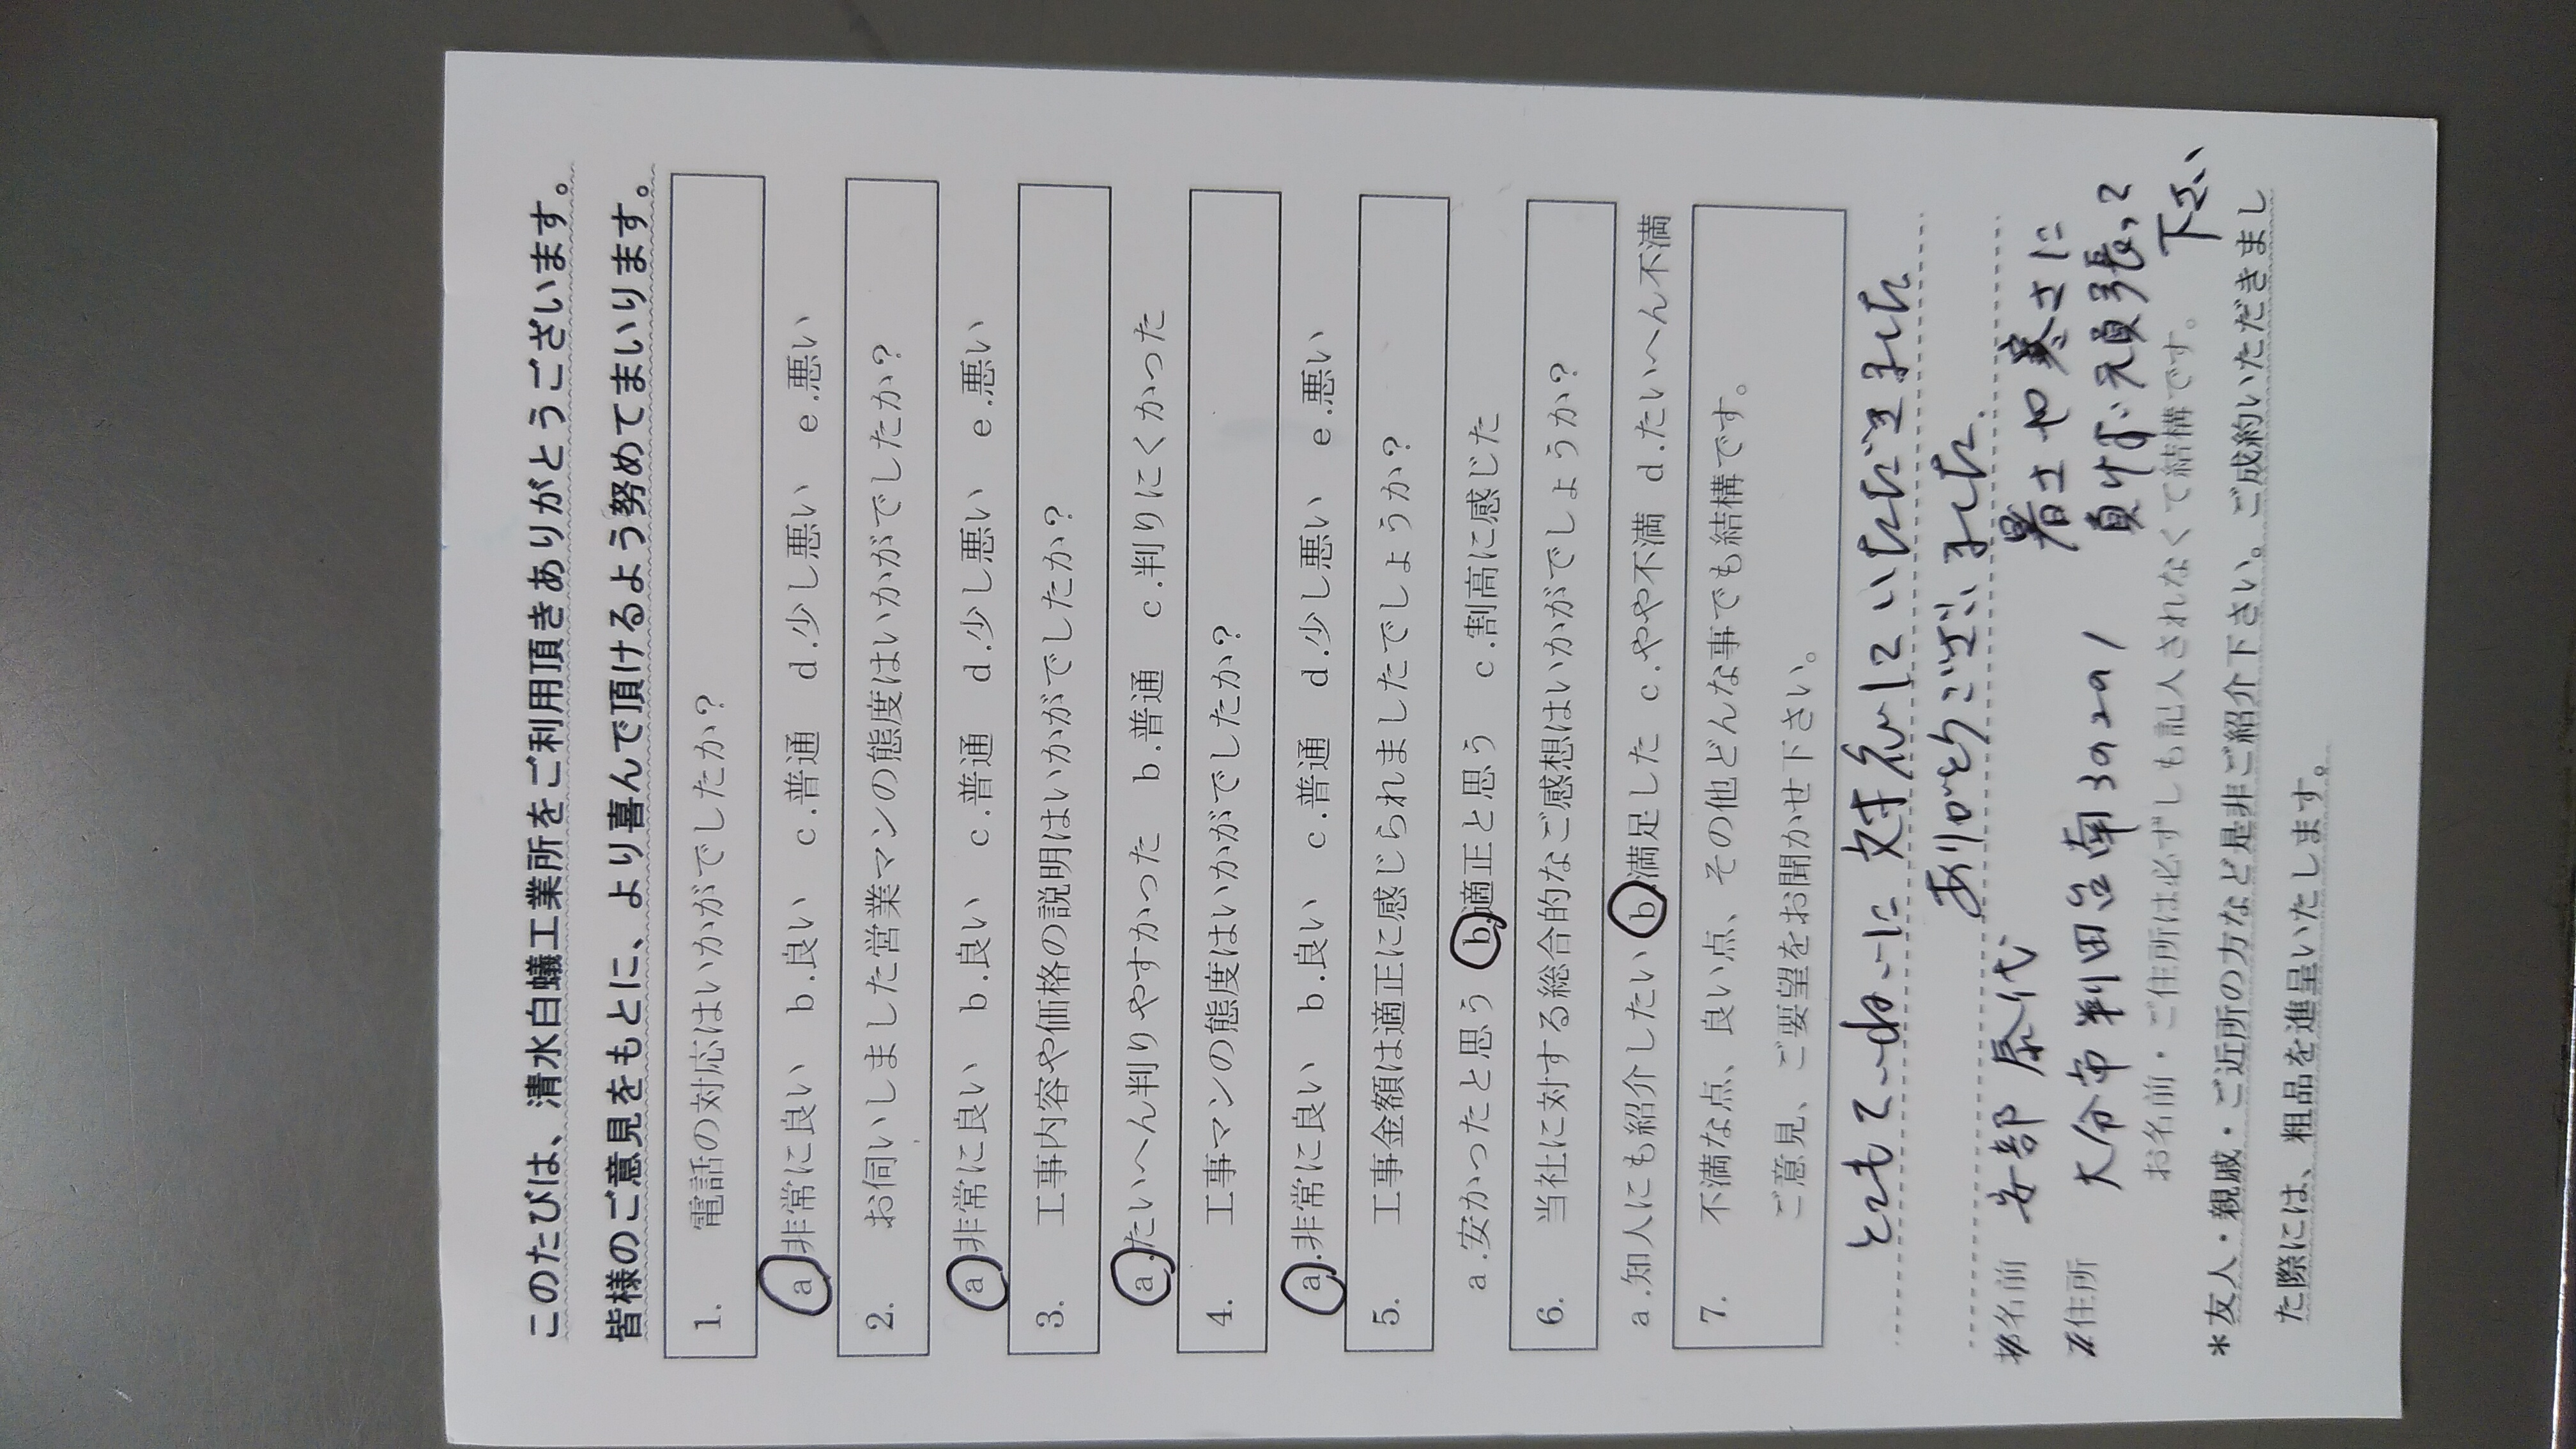 このたびは、清水白蟻工業所をご利用頂きありがとうございます。
皆様のご意見をもとに、より喜んで頂けるよう努めてまいります。
1. 電話の対応はいかがでしたか？
a.非常に良い b.良い c.普通 d.少し悪い e.悪い
2. お伺いしました営業マンの態度はいかがでしたか？
a.非常に良い b.良い c.普通 d.少し悪い e.悪い
3. 工事内容や価格の説明はいかがでしたか？
a.たいへん判りやすかった b.普通 c.判りにくかった
4. 工事マンの態度はいかがでしたか？
a.非常に良い b.良い c.普通 d.少し悪い e.悪い
5. 工事金額は適正に感じられましたでしょうか？
a.安かったと思う b.適正と思う c.割高に感じた
6. 当社に対する総合的なご感想はいかがでしょうか？
a.知人にも紹介したい b.満足した c.やや不満 d.たいへん不満
7. 不満な点、良い点、その他どんな事でも結構です。
ご意見、ご要望をお聞かせ下さい。
とてもていねいに対応していただきました
ありがとうございました。
暑さや寒さに
負けずい頑張って
下さい
名前 安部 泰代
住所 大分市判田台南3の2の1
お名前・ご住所は必ずしも記入されなくて結構です。
＊友人・親戚・ご近所の方など是非ご紹介下さい。ご成約いただきまし
た際には、粗品を進呈いたします。